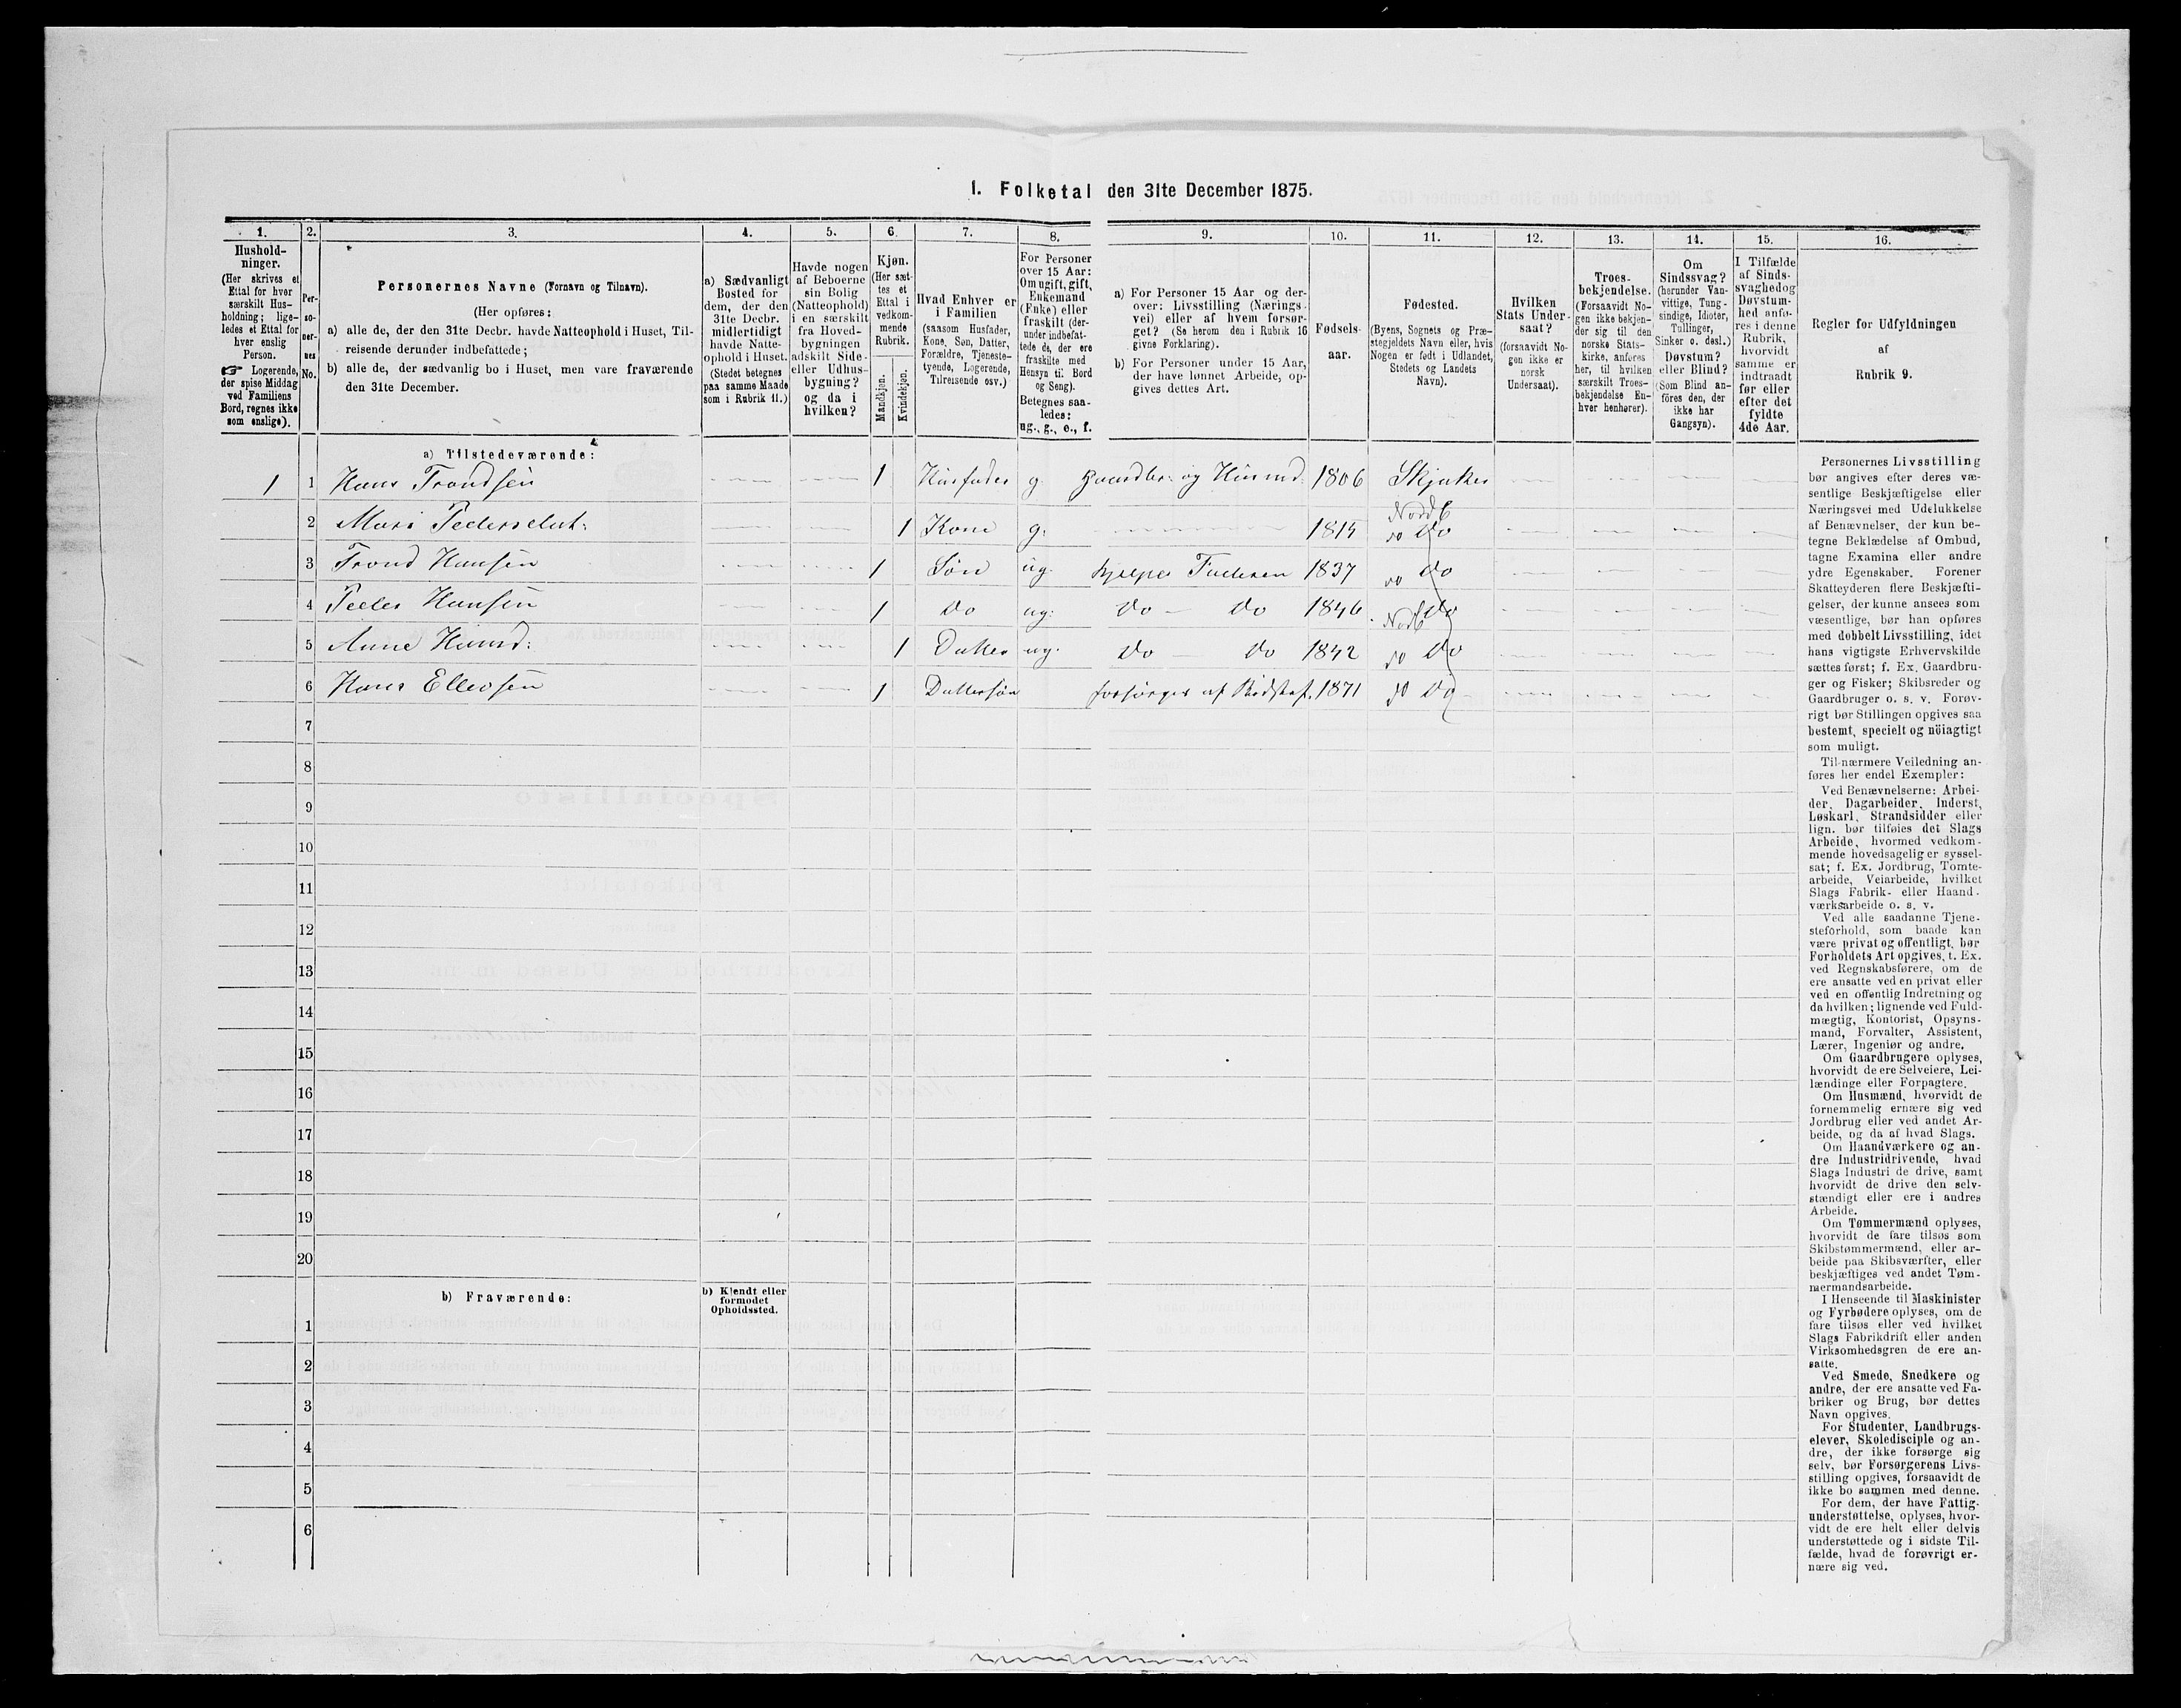 1. Folketal den 31te December 1875.
1. 2. 3. 4. 5. 6. 7. 8. 9. 10. 11. 12. 13. 14. 15. 16.
Hushold-
ninger.
(Her skrives et
Ettal for hver
særskilt Hus-
holdning; lige-
ledes et Ettal for
hver enslig
Person.
☞ Logerende,
der spise Middag
ved Familiens
Bord, regnes ikke
som enslige).
Per-
so-
ner-
nes
No.
Personernes Navne (Fornavn og Tilnavn).
(Her opføres:
a) alle de, der den 31te Decbr. havde Natteophold i Huset, Til-
reisende derunder indbefattede;
b) alle de, der sædvanlig bo i Huset, men vare fraværende
den 31te December.
a) Sædvanligt
Bosted for
dem, der den
31te Decbr.
midlertidigt
havde Natte-
ophold i Huset.
(Stedet betegnes
paa samme Maade
som i Rubrik 11.)
Havde nogen
af Beboerne
sin Bolig
(Natteophold)
i en særskilt
fra Hoved-
bygningen
adskilt Side-
eller Udhus-
bygning?
og da i
hvilken?
Kjøn.
(Her sæt-
tes et
Ettal i
vedkom-
mende
Rubrik.
Mandkjøn.
Kvindekjøn.
Hvad Enhver er
i Familien
(saasom Husfader,
Kone, Søn, Datter,
Forældre, Tjeneste-
tyende, Logerende,
Tilreisende osv.)
For Personer
over 15 Aar:
Om ugift, gift,
Enkemand
(Enke) eller
fraskilt (der-
under indbefat-
tede de, der ere
fraskilte med
Hensyn til Bord
og Seng).
Betegnes saa-
ledes:
ug., g., e., f.
a) For Personer 15 Aar og der-
over: Livsstilling (Nærings-
vei) eller af hvem forsør-
get? (Se herom den i Rubrik 16
givne Forklaring).
b) For Personer under 15 Aar,
der have lønnet Arbeide, op-
gives dettes Art.
Fødsels-
aar.
Fødested.
(Byens, Sognets og Præ-
stegjeldets Navn eller, hvis
Nogen er født i Udlandet,
Stedets og Landets
Navn).
Hvilken
Stats Under-
saat?
(forsaavidt No-
gen ikke er
norsk
Undersaat).
Troes-
bekjendelse.
(Forsaavidt No-
gen ikke bekjen-
der sig til den
norske Stats-
kirke, anføres
her, til hvilken
særskilt Troes-
bekjendelse En-
hver henhører).
Om
Sindssvag?
(herunder Van-
vittige, Tung-
sindige, Idioter,
Tullinger,
Sinker o. desl.)
Døvstum?
eller Blind?
(Som Blind an-
föres den, der
ikke har
Gangsyn).
I Tilfælde
af Sinds-
svaghed og
Døvstum-
hed anfø-
res i denne
Rubrik,
hvorvidt
samme er
indtraadt
før eller
efter det
fyldte
4de Aar.
Regler for Udfyldningen
af
Rubrik 9.
a) Tilstedeværende:
1 1 Hans Trondsen 1 Husfader g. Gaardbr: og Husmd: 1806 Skjaker
Nordb
2 Mari Pedersdat: 1 Kone g: 1814 do do
3 Trond Hansen 1 Søn ug. hjelper Faderen 1837 do do
4 Peder Hansen 1 do ug: do — do 1846 Nodb do
5 Anne Hansd: 1 Datter ug. do — do 1842 do do
6 Hans Ellevsen 1 Dattersøn forsørges af 1871 do do
7
8
9
10
11
12
13
14
15
16
17
18
19
20
b) Fraværende:
b) Kjendt eller
formodet
Opholdssted.
1
2
3
4
5
6
Personernes Livsstilling
bør angives efter deres væ-
sentlige Beskjæftigelse eller
Næringsvei med Udelukkelse
af Benævnelser, der kun be-
tegne Beklædelse af Ombud,
tagne Examina eller andre
ydre Egenskaber. Forener
Skatteyderen flere Beskjæfti-
gelser, der kunne ansees som
væsentlige, bør han opføres
med dobbelt Livsstilling, idet
hans vigtigste Erhvervskilde
sættes først; f. Ex. Gaardbru-
ger og Fisker; Skibsreder og
Gaardbruger o. s. v. Forøv-
rigt bør Stillingen opgives saa
bestemt, specielt og nöiagtigt
som muligt.
Til nærmere Veiledning an-
føres her endel Exempler:
Ved Benævnelserne: Arbei-
der, Dagarbeider, Inderst,
Løskarl, Strandsidder eller
lign. bør tilføies det Slags
Arbeide, hvormed vedkom-
mende hovedsagelig er syssel-
sat; f. Ex. Jordbrug, Tomte-
arbeide, Veiarbeide, hvilket
Slags Fabrik- eller Haand-
værksarbeide o. s. v.
Ved alle saadanne Tjene-
steforhold, som baade kan
være privat og offentligt, bør
Forholdets Art opgives, t. Ex.
ved Regnskabsførere, om de
ere ansatte ved en privat eller
ved en offentlig Indretning og
da hvilken; lignende ved Fuld-
mægtig, Kontorist, Opsyns-
mand, Forvalter, Assistent,
Lærer, Ingeniør og andre.
Om Gaardbrugere oplyses,
hvorvidt de ere Selveiere, Lei-
lændinge eller Forpagtere.
Om Husmænd, hvorvidt de
fornemmelig ernære sig ved
Jordbrug eller ved andet Ar-
beide, og da af hvad Slags.
Om Haandværkere og an-
dre Industridrivende, hvad
Slags Industri de drive, samt
hvorvidt de drive den selv-
stændigt eller ere i andres
Arbeide.
Om Tømmermænd oplyses,
hvorvidt de fare tilsøs som
Skibstømmermænd, eller ar-
beide paa Skibsværfter, eller
beskjæftiges ved andet Tøm-
mermandsarbeide.
I Henseende til Maskinister
og Fyrbødere oplyses, om de
fare tilsøs eller ved hvilket
Slags Fabrikdrift eller anden
Virksomhedsgren de ere an-
satte.
Ved Smede, Snedkere og
andre, der ere ansatte ved Fa-
briker og Brug, bør dettes
Navn opgives.
For Studenter, Landbrugs-
elever, Skoledisciple og an-
dre, der ikke forsørge sig
selv, bør Forsørgerens Livs-
stilling opgives, forsaavidt de
ikke bo sammen med denne.
For dem, der have Fattig-
understøttelse, oplyses, hvor-
vidt de ere helt eller delvis
understøttede og i sidste Til-
fælde, hvad de forøvrigt er-
nære sig ved.